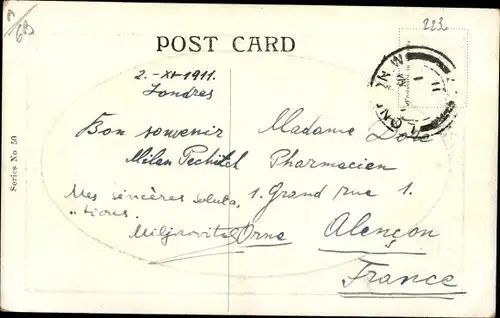 223
69
POST CARD
2.-XI-1911.
Londres
Bon souvenir
Milan Pechitch
Mes sincères saluta
tions.
Madame Dore
Pharmacien
1. Grand rue 1.
Alençon
Orne
France
Series No 50